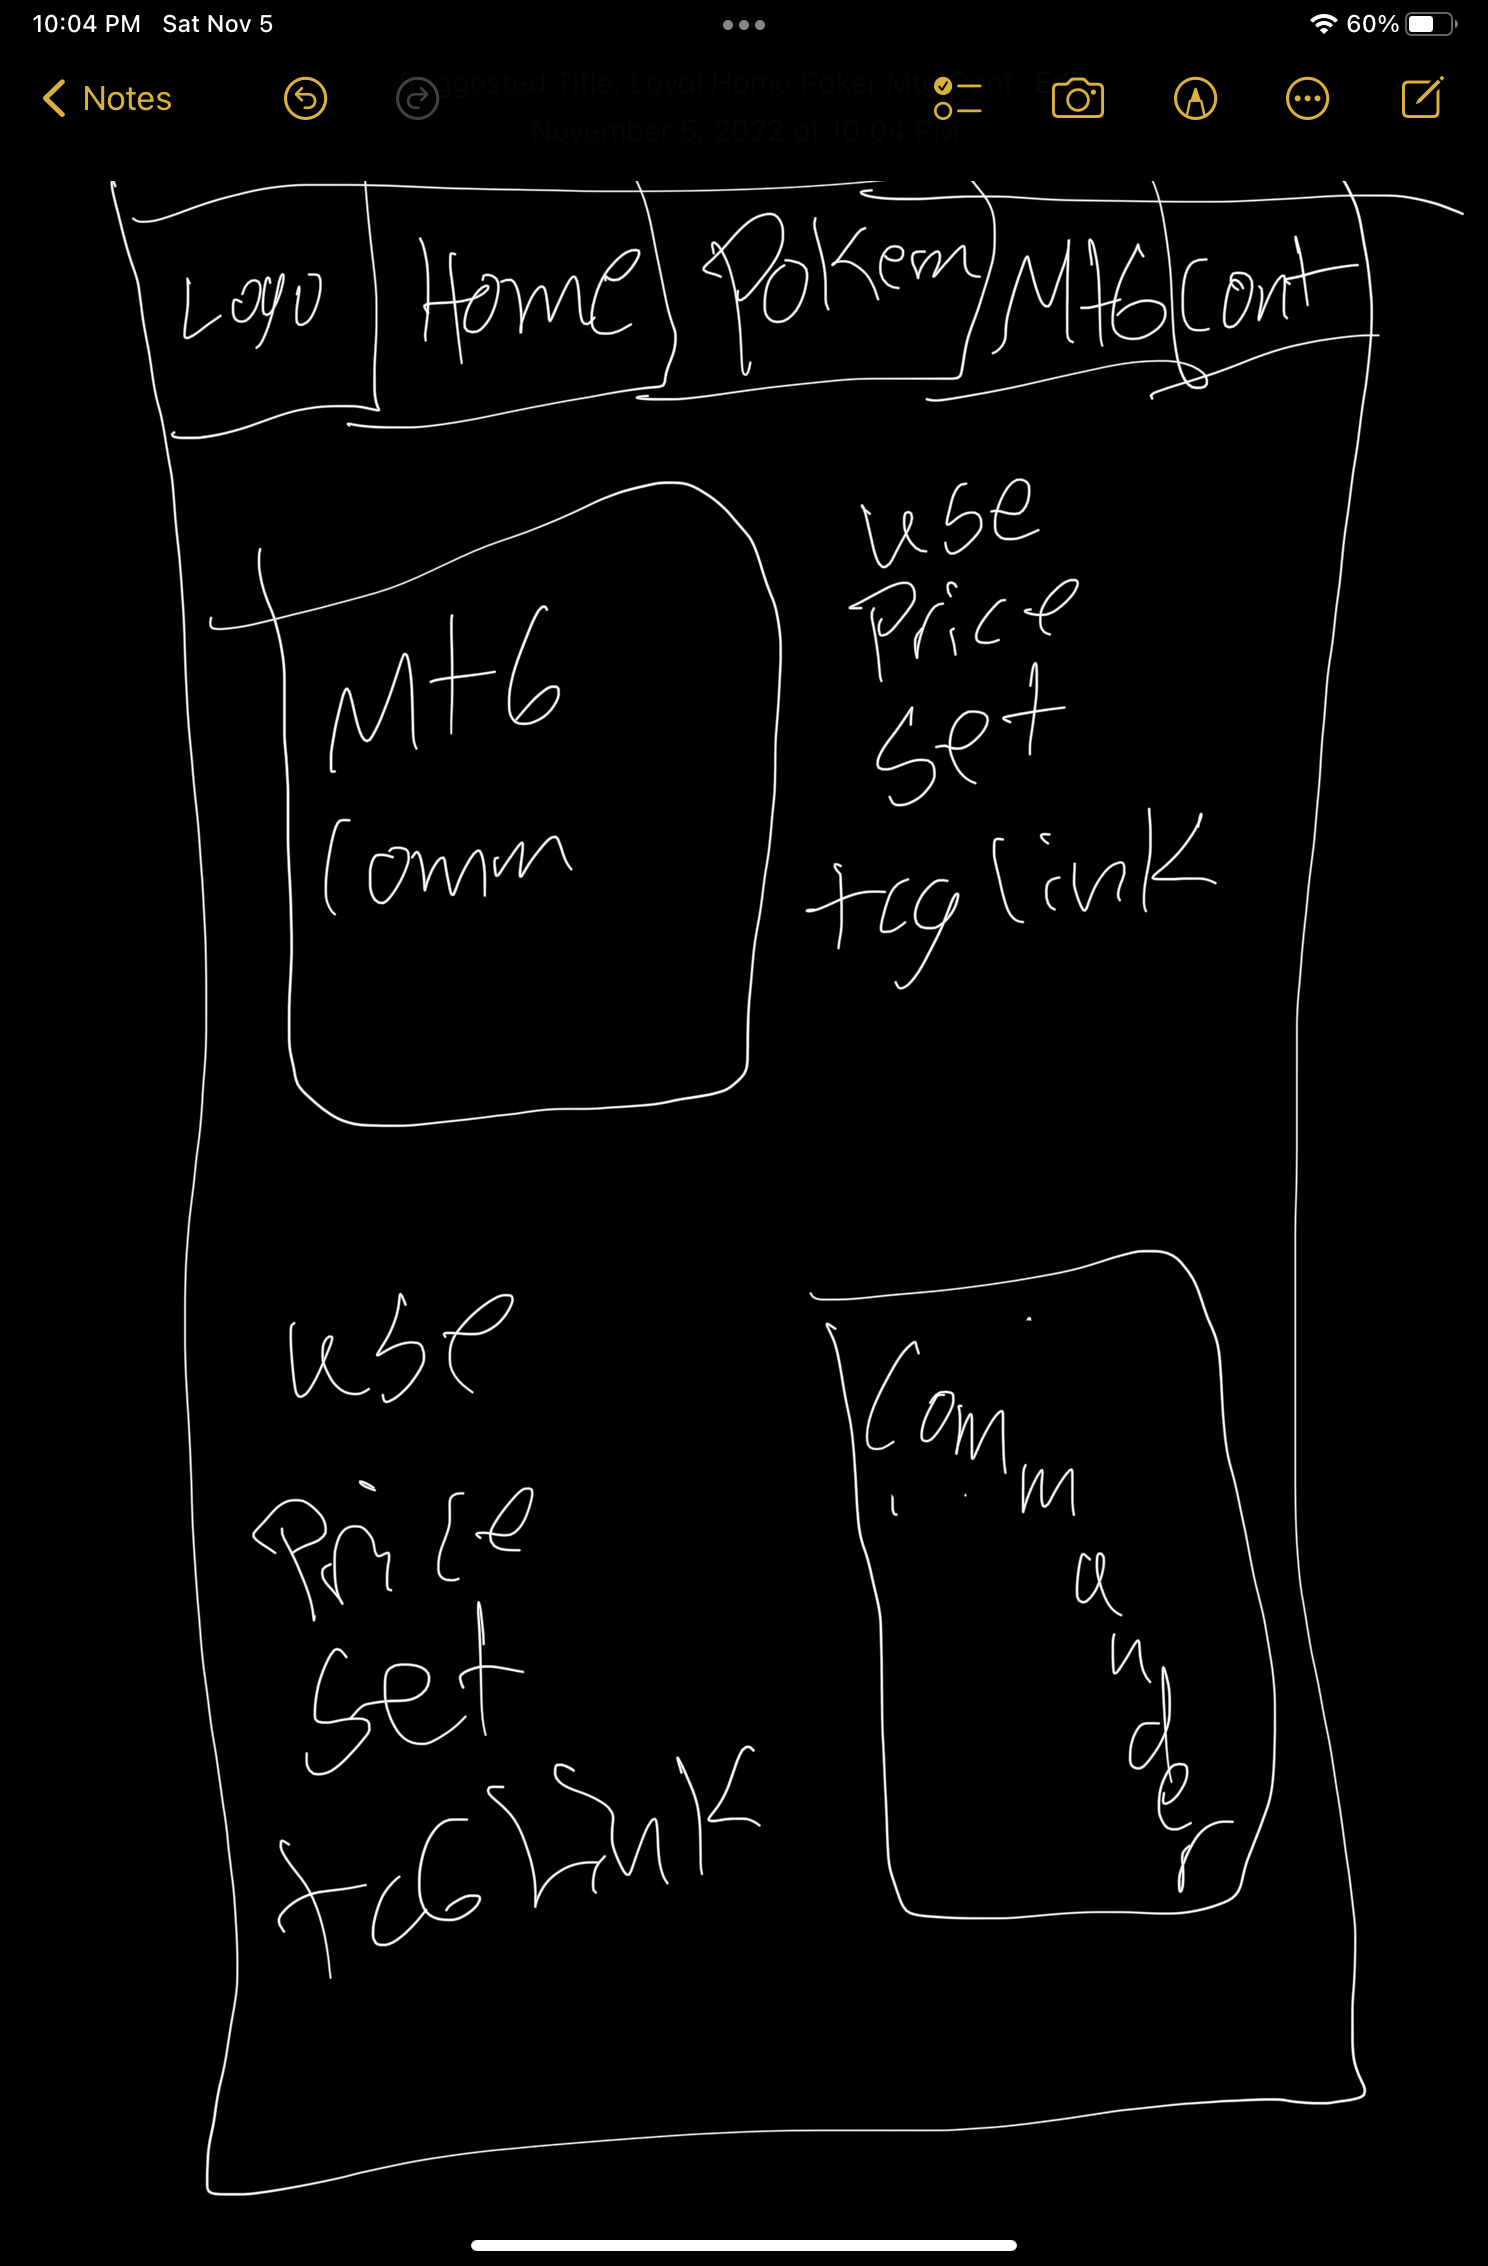 10:04 PM Sat Nov 5
60%
Notes
Suggested Title: Loyal Home Poker Mt6 Cont
November 5, 2022 at 10:04 PM
Logo Home Pokem Mt6 Cont
Mt6
Comm
use
Price
Set
tcg link
use
Price
Set
tcG LINK
Commander